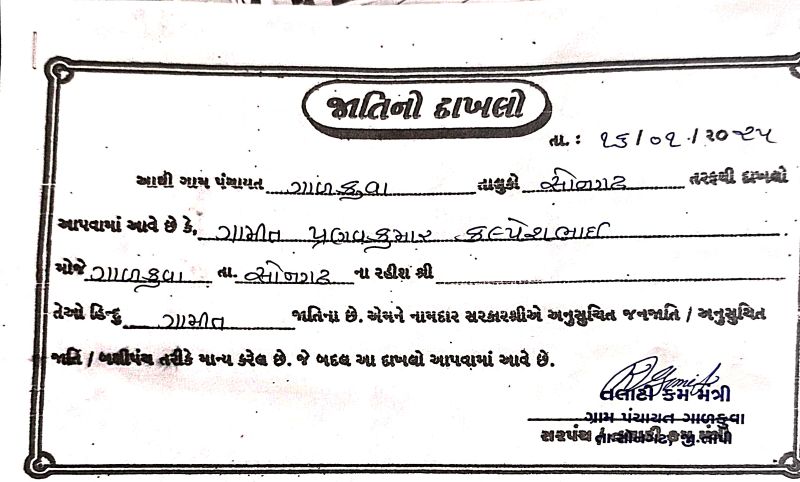 જાતિનો દાખલો
તા. : ૧૬/૦૧/૨૦૨૫
આથી ગ્રામ પંચાયત ગાળકુવા તાલુકો સોનગઢ તરફથી દાખલો
આપવામાં આવે છે કે, ગામીત પ્રણવકુમાર કલ્પેશભાઈ
મોજે ગાળકુવા તા. સોનગઢ ના રહીશ શ્રી
તેઓ હિન્દુ ગામીત જાતિના છે. એમને નામદાર સરકારશ્રીએ અનુસુચિત જનજાતિ / અનુસુચિત
જાતિ / બક્ષીપંચ તરીકે માન્ય કરેલ છે. જે બદલ આ દાખલો આપવામાં આવે છે.
તલાટી કમ મંત્રી
ગ્રામ પંચાયત ગાળકુવા
સરપંચ / તા.સોનગઢ, જી.તાપી